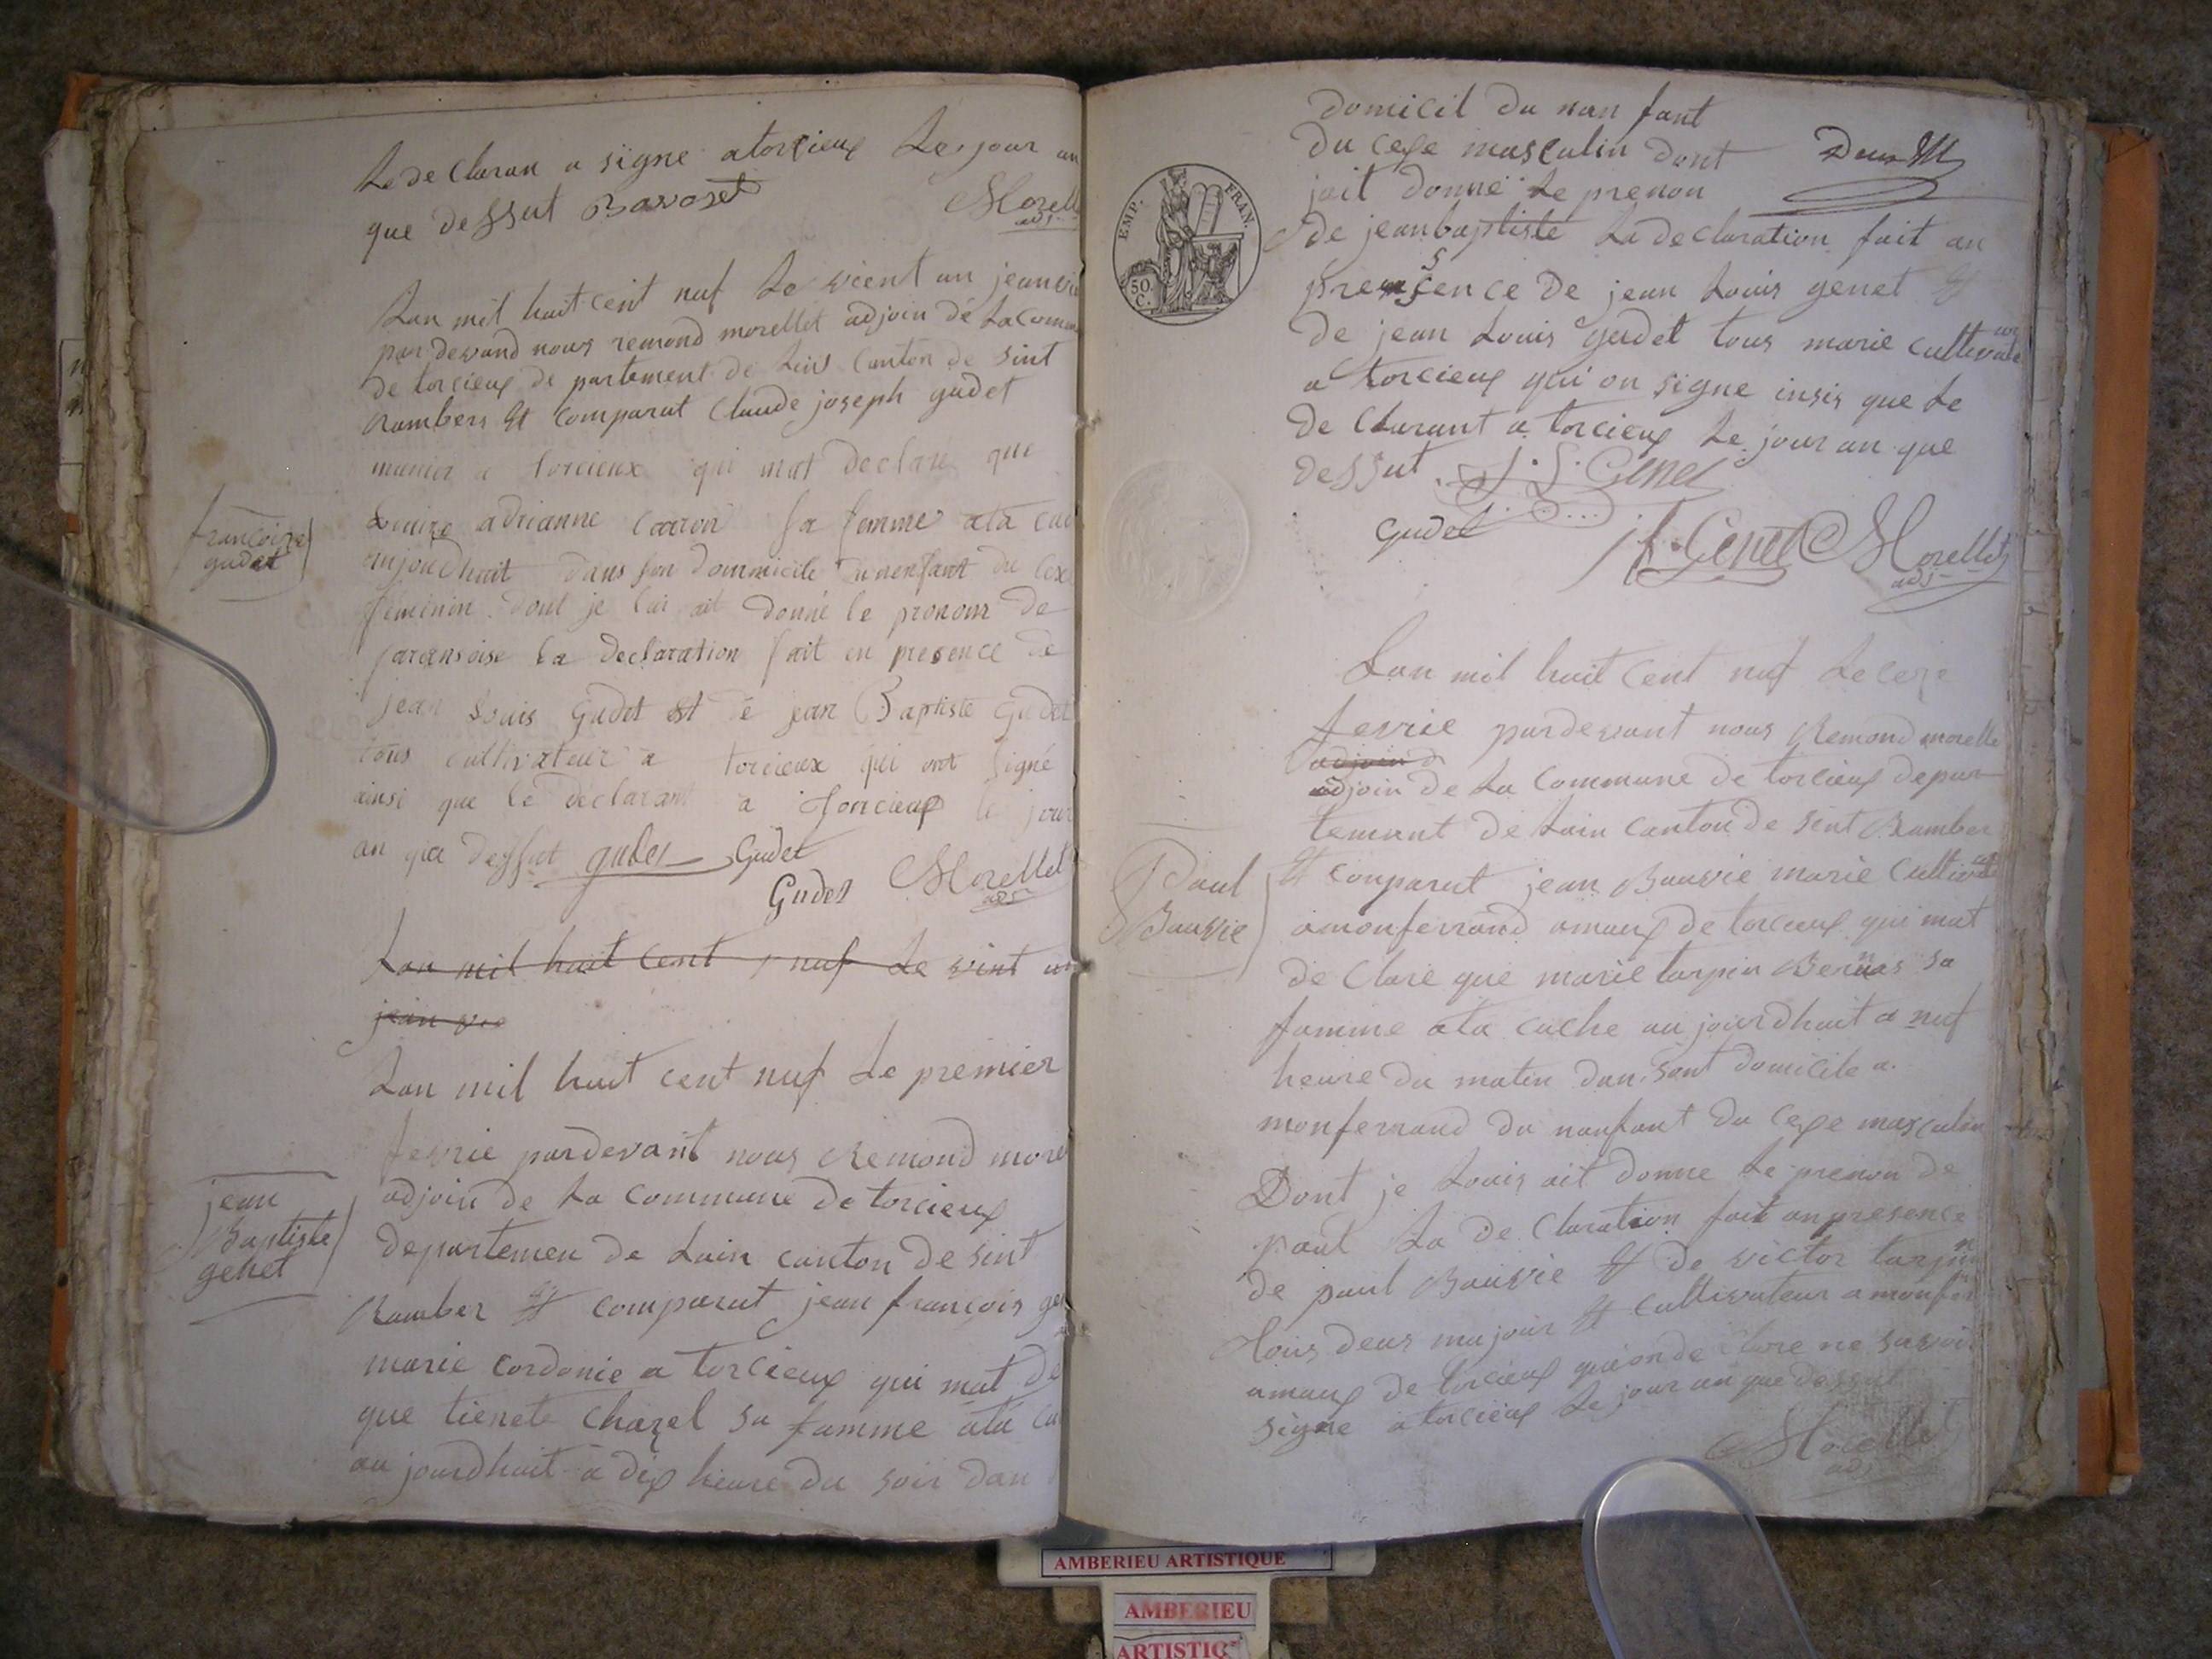 Le de Claran a signe a torcieux Le jour an
que dessut Bavoset
Morell
adj
Lan mil huit cent nuf Le vient un jeanvi
par devand nous remond morellet adjoin de La Comm
de torcieux de partement de Lins Canton de sint
Rambers Et Comparut Claude joseph gudet
munier a torcieux qui mat declare que
adrianne Caaron sa femme ata cu
aujoudhuit dans son dommicile dunenfant du Cexe
feminin dont je lui ait donné le pronom de
faransoise la declaration fait en presence de
jean Louis Gudet est de jean Baptiste Gudet
tous cultivateur a torcieux qui ont signé
ainsi que le declarant a torcieux le jour
an que dessut gudet Gudet
Gudet Morellet
adj
francoise
gudet
Lan mil huit Cent nuf Le vint un
jean vie
Lan mil huit cent nuf Le premier
fevrie pardevant nous Remond more
adjoin de La Commune de torcieux
departemen de Lain canton de sint
Ramber Et Comparut jean francois ge
marie cordonie a torcieux qui mat de
que tienete Chazel sa famme ata cu
au jourdhuit a dix heure du soir dan
jean
Baptiste
genet
domicil du nan fant
du cexe masculin dont
jait donne Le prenon
de jeanbaptiste La declaration fait an
presence de jean Louis genet Et
de jean Louis gudet tous marie Cultivateur
a torcieux qui on signe insis que Le
de Clarant a torcieux Le jour an que
dessut J. L. Genet
Gudet
j f. Genet Morellet
adj
EMP. FRAN.
50.
C.
Lan mil huit Cent nuf Le ceze
fevrie pardevant nous Remond morelle
adjoin d
adjoin de La Commune de torcieux depar
temant de Lain Canton de sint Ramber
Et Conparut jean Bauvie marie Cultivateur
amonferrand amaux de torcieux qui mat
de Clare que marie tarpin Bernas sa
famme ata cuche au jourdhuit a nuf
heure du matin dan sont domicile a
monferrand du nanfant du Cexe masculin
Dont je Louis ait donne Le prenon de
paul La de Claration fait an presence
de paul Bauvie Et de victor tarpin
tous deus majour Et Cultivateur a monfer
amaux de torcieux qui on de Clare ne savoir
signe a torcieux Le jour an que dessut
Morellet
adj
Paul
Bauvie
AMBERIEU ARTISTIQUE
AMBERIEU
ARTISTIQ